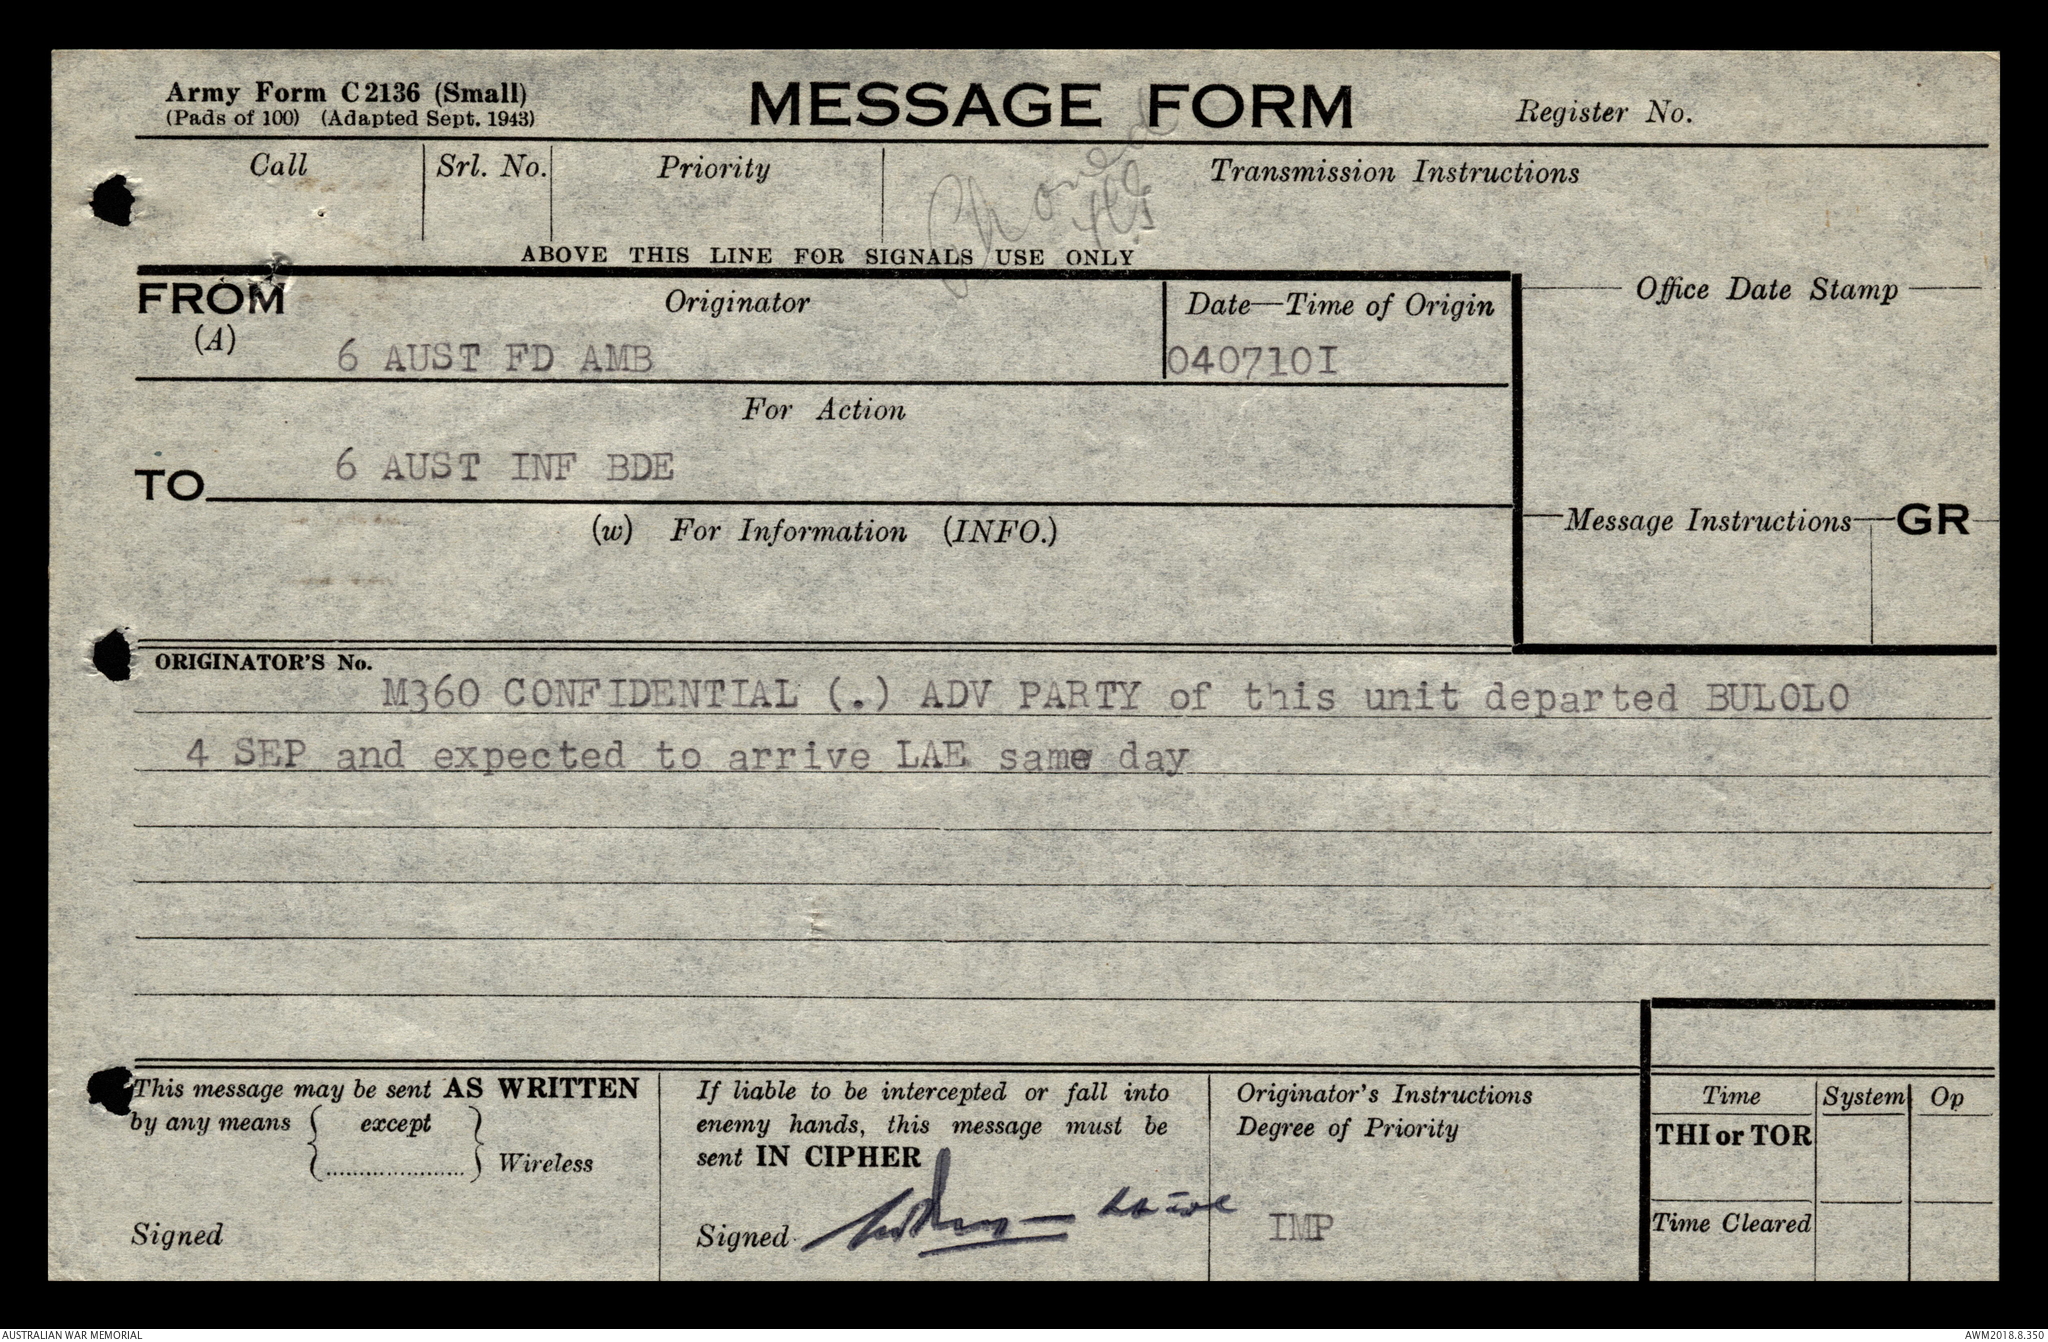 Army Form C 2136 (Small)
(Pads of 100) (Adapted Sept. 1943)
MESSAGE FORM
Register No.
Call
Srl. No.
Priority
Transmission Instructions
Phoned
ABOVE THIS LINE FOR SIGNALS USE ONLY
FROM
(A)
Originator
Date—Time of Origin
Office Date Stamp
6 AUST FD AMB
040710I
For Action
TO
6 AUST INF BDE
(w) For Information (INFO.)
Message Instructions
GR
ORIGINATOR'S No.
M360 CONFIDENTIAL (.) ADV PARTY of this unit departed BULOLO
4 SEP and expected to arrive LAE same day
This message may be sent AS WRITTEN
by any means { except }
{......................} Wireless
Signed
If liable to be intercepted or fall into
enemy hands, this message must be
sent IN CIPHER
Signed
Originator's Instructions
Degree of Priority
IMP
Time
System
Op
THI or TOR
Time Cleared
AUSTRALIAN WAR MEMORIAL
AWM2018.8.350